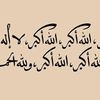 الله أكبر، الله أكبر، الله أكبر، لا إله
الله أكبر، الله أكبر، ولله